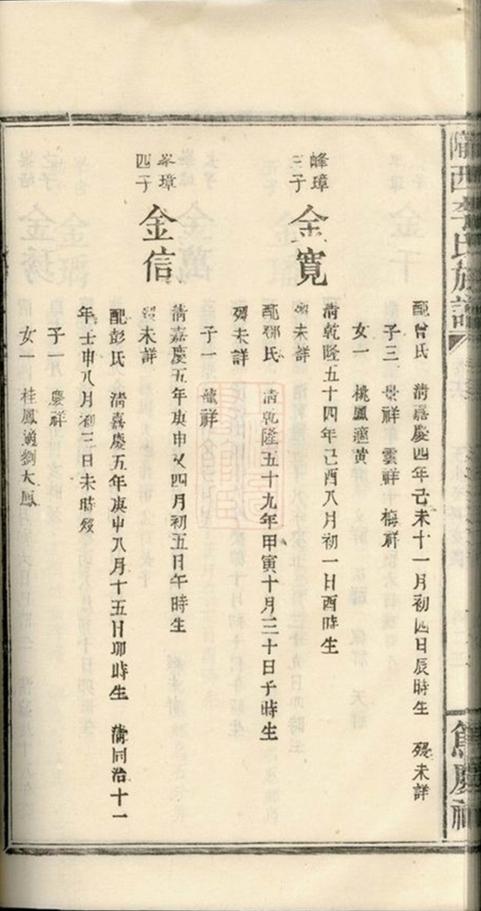 隴西李氏族譜
篤慶祠
配曾氏 清嘉慶四年己未十一月初四日辰時生 歿未詳
子三 景祥 雲祥 梅祥
女一 桃鳳適黃
峰璋三子 金寬 清乾隆五十四年己酉八月初一日酉時生
歿未詳
配鄧氏 清乾隆五十九年甲寅十月三十日子時生
歿未詳
子一 祥
峯璋四子 金信 清嘉慶五年庚申又四月初五日午時生
歿未詳
配彭氏 清嘉慶五年庚申八月十五日卯時生 清同治十一
年壬申八月初三日未時歿
子一 慶祥
女一 桂鳳適劉大鳳